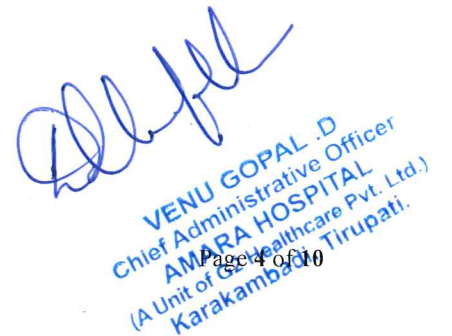 VENU GOPAL .D
Chief Administrative Officer
AMARA HOSPITAL
(A Unit of G2 Healthcare Pvt. Ltd.)
Karakambadi, Tirupati.
Page 4 of 10